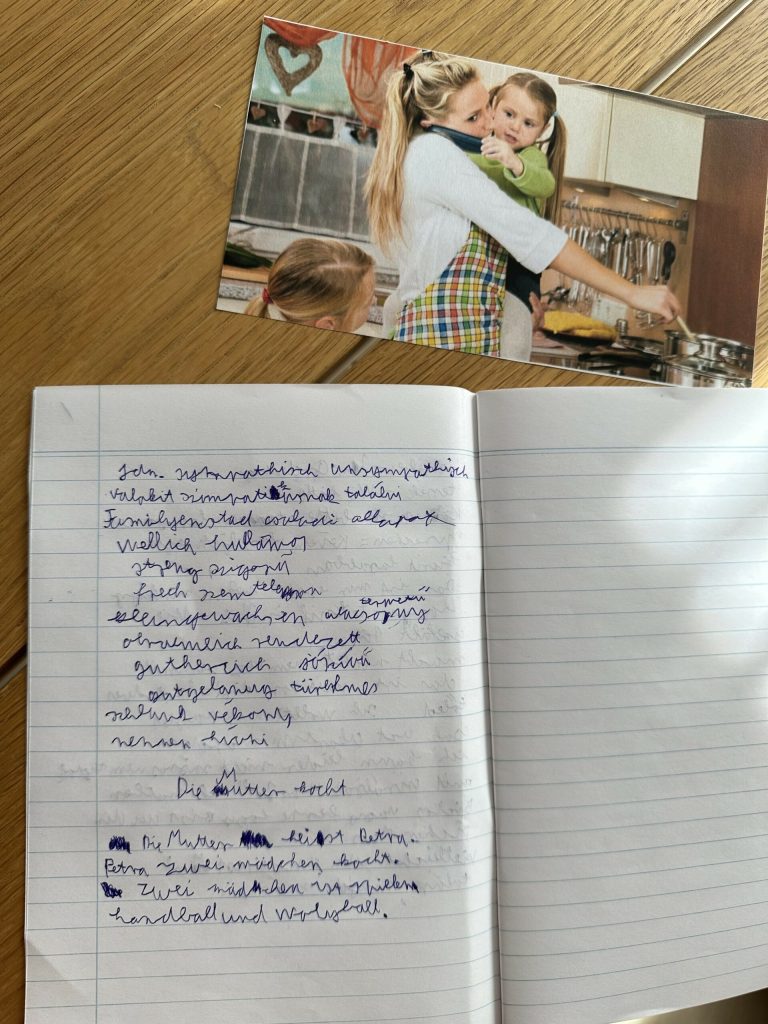 Jdn. sympathisch unsympathisch
valakit szimpatikusnak találni
Familyenstad családi állapot
wellich hullámos
streng szigorú
frech szemtelen
kleingewachsen alacsony termetű
ordentlich rendezett
gutherzich jószívű
türelmes
schlank vékony
nennen hívni
Die Mutter kocht
Die Mutter heist Petra.
Petra zwei mädchen kocht.
zwei mädchen ist spielen
handball und wolyball.